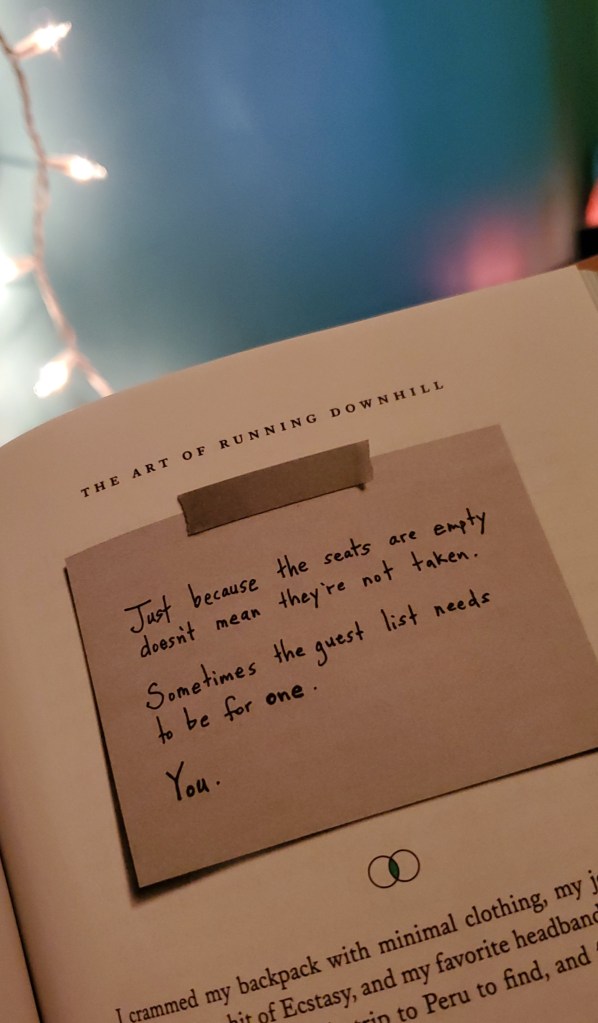 THE ART OF RUNNING DOWNHILL
Just because the seats are empty
doesn't mean they're not taken.
Sometimes the guest list needs
to be for one.
You.
I crammed my backpack with minimal clothing, my
hit of Ecstasy, and my favorite headband
trip to Peru to find, and